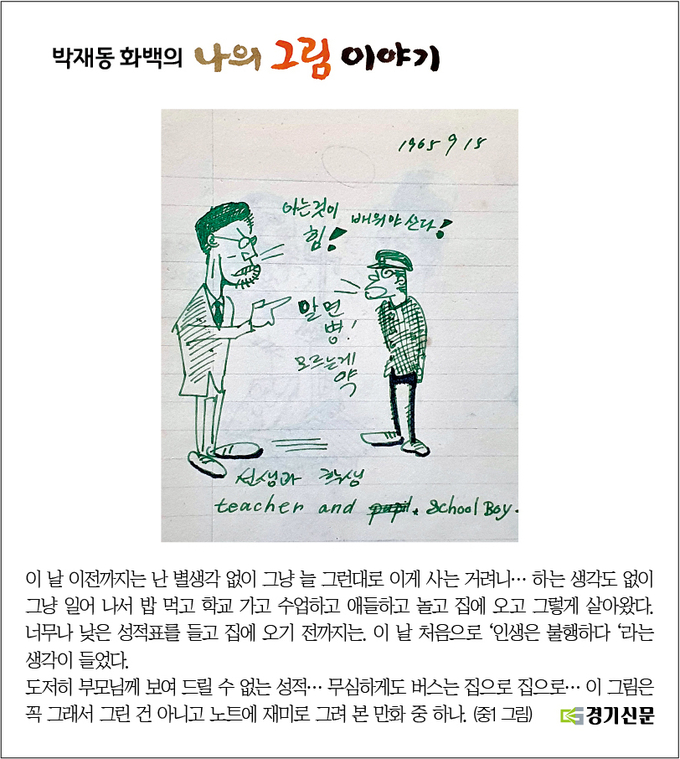 박재동 화백의 나의 그림 이야기
1965 9 15
아는것이 배워야 산다!
힘!
알면
병!
모르는게
약
선생과 학생
teacher and pupil. School Boy.
이 날 이전까지는 난 별생각 없이 그냥 늘 그런대로 이게 사는 거려니… 하는 생각도 없이
그냥 일어 나서 밥 먹고 학교 가고 수업하고 애들하고 놀고 집에 오고 그렇게 살아왔다.
너무나 낮은 성적표를 들고 집에 오기 전까지는. 이 날 처음으로 ‘인생은 불행하다 ‘라는
생각이 들었다.
도저히 부모님께 보여 드릴 수 없는 성적… 무심하게도 버스는 집으로 집으로… 이 그림은
꼭 그래서 그린 건 아니고 노트에 재미로 그려 본 만화 중 하나. (중1 그림) 경기신문